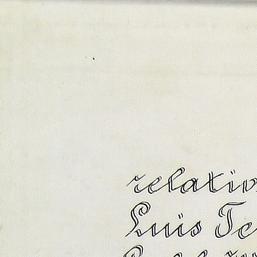 relativ
Luis Te